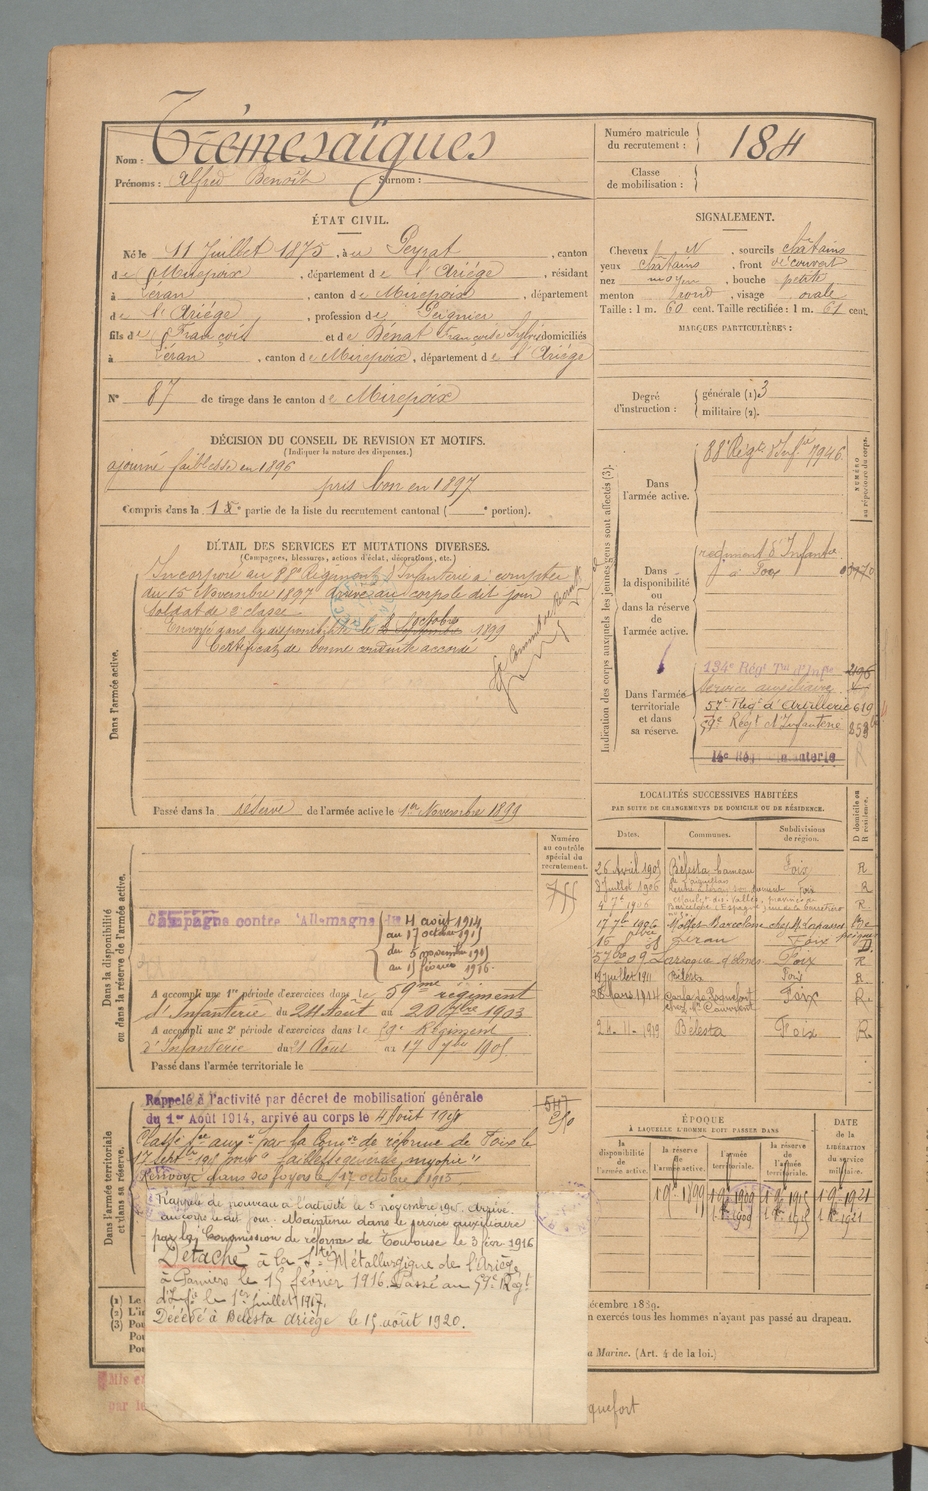 Nom : Trémesaïgues
Prénoms : Alfred Benoît Surnom :
Numéro matricule du recrutement : 184
Classe de mobilisation :
ÉTAT CIVIL.
Né le 11 Juillet 1875, à Peyrat, canton
de Mirepoix, département de l'Ariége, résidant
à Léran, canton de Mirepoix, département
de l'Ariége, profession de Peignier
fils de François et de Bénat Françoise domiciliés
à Léran, canton de Mirepoix, département de l'Ariége
N° 87 de tirage dans le canton de Mirepoix
SIGNALEMENT.
Cheveux N, sourcils châtains
yeux châtains, front découvert
nez moyen, bouche petite
menton rond, visage ovale
Taille : 1 m. 60 cent. Taille rectifiée : 1 m. 61 cent.
MARQUES PARTICULIÈRES :
Degré d'instruction : générale (1) 3
militaire (2).
DÉCISION DU CONSEIL DE REVISION ET MOTIFS.
(Indiquer la nature des dispenses.)
ajourné faiblesse en 1896
pris bon en 1897
Compris dans la 1e partie de la liste du recrutement cantonal ( e portion).
DÉTAIL DES SERVICES ET MUTATIONS DIVERSES.
(Campagnes, blessures, actions d'éclat, décorations, etc.)
Dans l'armée active.
Incorporé au 88e Régiment d'Infanterie à compter
du 15 Novembre 1897 arrivé au corps le dit jour
soldat de 2e classe
Envoyé dans la disponibilité le octobre 1899
Certificat de bonne conduite accordé
Passé dans la réserve de l'armée active le 1er Novembre 1899
Indication des corps auxquels les jeunes gens sont affectés (3).
NUMÉRO au répertoire du corps.
Dans l'armée active.
88e Régt d'Infie 7946
Dans la disponibilité ou dans la réserve de l'armée active.
régiment d'Infanterie
à Foix
Dans l'armée territoriale et dans sa réserve.
134e Régt Tal d'Infie 2196
Service auxiliaire
57e Régt d'Artillerie 619
59e Régt d'Infanterie
LOCALITÉS SUCCESSIVES HABITÉES
PAR SUITE DE CHANGEMENTS DE DOMICILE OU DE RÉSIDENCE.
D domicile ou R résidence.
Dates. Communes. Subdivisions de région.
26 Avril 1905 Bélesta hameau Foix R
8 Juillet 1906 Foix R
1906 R
17 7bre 1906 Barcelone chez M.
16 Léran Foix D
09 Foix R
Juillet 1911 Bélesta Foix R
28 Mars 1914 Foix R
24-11-1919 Bélesta Foix R
Dans la disponibilité ou dans la réserve de l'armée active.
Numéro au contrôle spécial du recrutement.
755
Campagne contre l'Allemagne du 4 août 1914
au 17 octobre 1915
du 5 novembre 1915
au 15 février 1916
A accompli une 1re période d'exercices dans le 59me régiment
d'Infanterie du 24 Août au 20 7bre 1903
A accompli une 2e période d'exercices dans le 59e Régiment
d'Infanterie du 21 Août au 17 7bre 1905
Passé dans l'armée territoriale le
Dans l'armée territoriale et dans sa réserve.
Rappelé à l'activité par décret de mobilisation générale
du 1er Août 1914, arrivé au corps le 4 Août 1914
547
Classé sce auxre par la Comon de réforme de Foix le
17 septbre 1915 pour "faiblesse générale, myopie"
Renvoyé dans ses foyers le 17 octobre 1915
Rappelé de nouveau à l'activité le 5 novembre 1915. Arrivé
au corps le dit jour. Maintenu dans le service auxiliaire
par la Commission de réforme de Toulouse le 3 févr 1916
Détaché à la Sté Métallurgique de l'Ariège
à Pamiers le 15 février 1916. Passé au 57e Régt
d'Infie le 1er juillet 1917.
Décédé à Bélesta Ariège le 15 août 1920.
ÉPOQUE
À LAQUELLE L'HOMME DOIT PASSER DANS
la disponibilité de l'armée active. la réserve de l'armée active. l'armée territoriale. la réserve de l'armée territoriale.
DATE de la LIBÉRATION du service militaire.
1 9bre 1899 1 9bre 1909 1 9bre 1915 1 9bre 1921
1 8bre 1909 1 8bre 1915 1 8bre 1921
(1) Le
(2) L'in
(3) Pou
Pou
Pou
décembre 1889.
n exercés tous les hommes n'ayant pas passé au drapeau.
a Marine. (Art. 4 de la loi.)
Mis e
par le
quefort